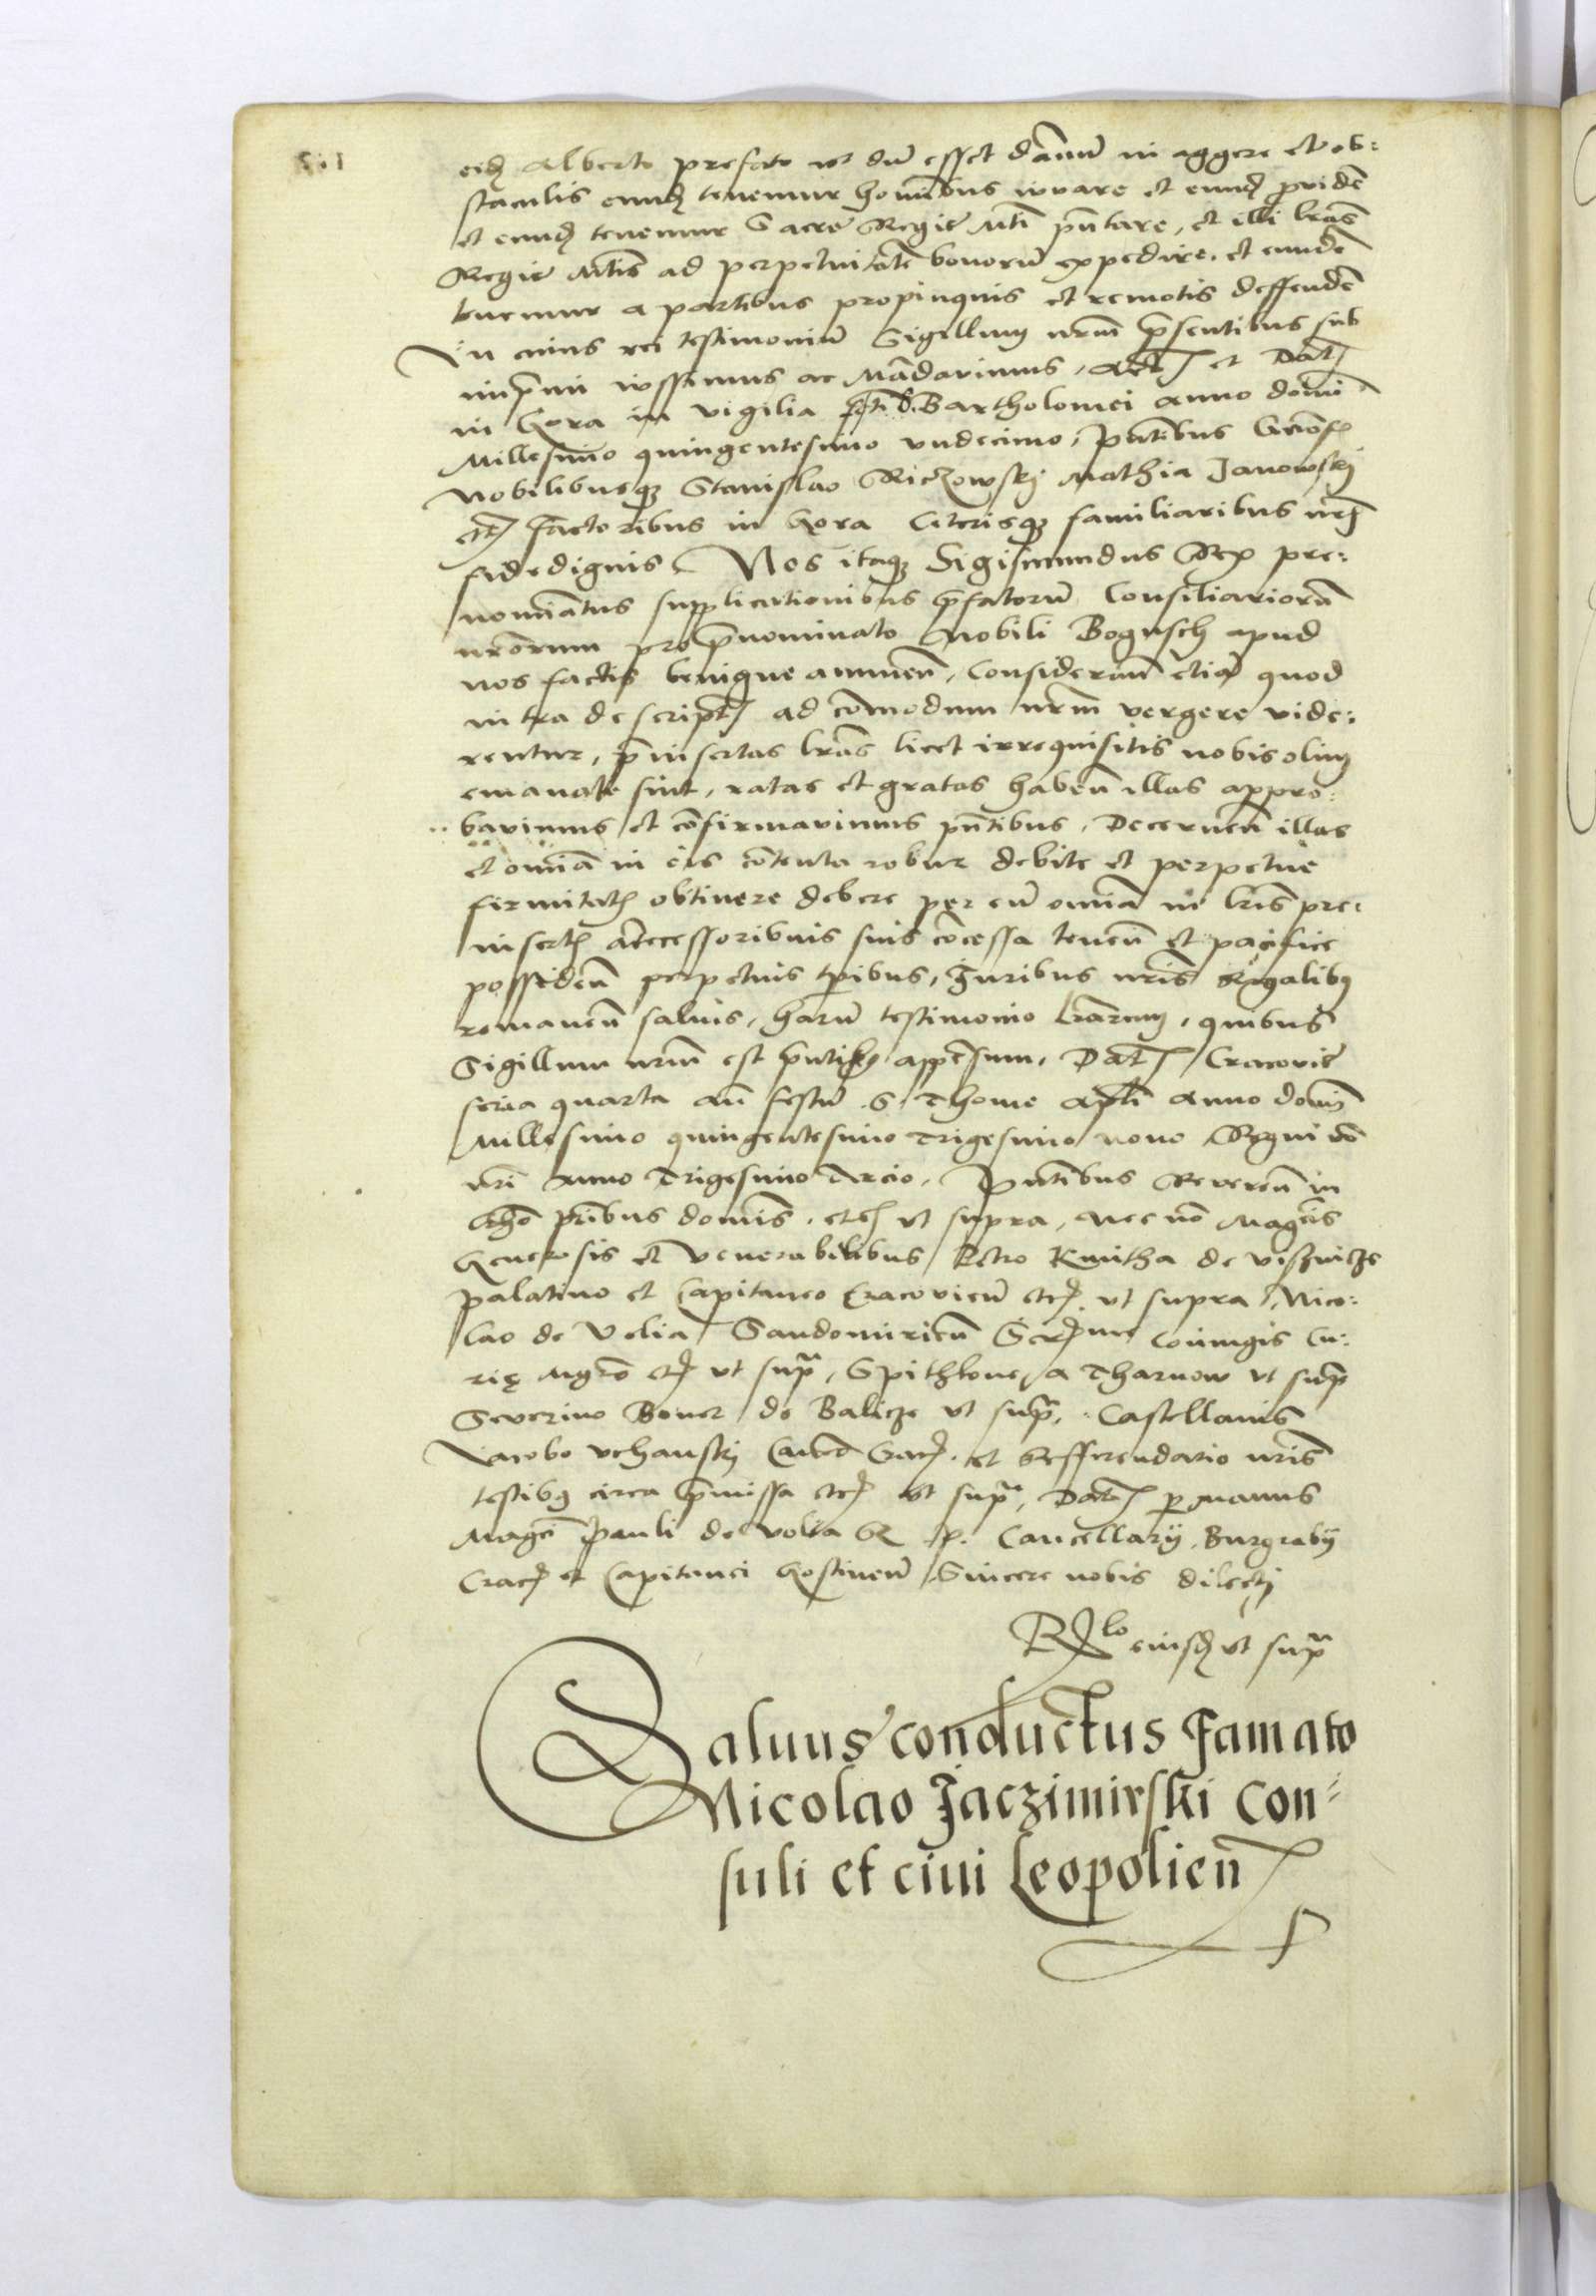 eid(em) Alberto prefato vt dū esset dānū in aggere et ob:
staculis eund(em) tenemur hominibus iuvare et eund(em) providē
et eund(em) tenemur Sacre Regie Mti pn̄tare, et illi lras
Regie Mtis ad perpetuitatē bonorū expedire, et eundē
tenemur a partibus propinquis et remotis deffendē
In cuius rei testimoniū Sigillum nrm̄ p̄sentibus sub
imprimi iussimus ac Mādavimus, Act(um) et Dat(um)
in Gora in vigilia scti Bartholomei anno domī
Millesimo quingentesimo vndecimo, pn̄tibus
Nobilibusq(ue) Stanislao Riczowskj Mathia Janowskj
etc factoribus in Gora Ceterisq(ue) familiaribus nrīs
fidedignis. Nos itaq(ue) Sigismundus Rex pre:
nominatus supplicationibus p̄fatorū Consiliariorū
nrōrum pro p̄nominato Nobili Bogusch apud
nos factis benigne annuen̄, Consideran̄ etiā quod
intra descript(a) ad cōmodum nrm̄ vergere vide:
rentur, p̄insertas lrās licet irrequisitis nobis olim
emanate sint, ratas et gratas haben̄ illas appro:
bavimus et cōfirmavimus pn̄tibus, Decernen̄ illas
et omīa in eis cōtenta robur debite et perpetue
firmitat(is) obtinere debere per eū omīa in lrīs pre:
insert(is) ātecessoribus suis cōcessa tenen̄ et pacifice
possiden̄ perpetuis tp̄ibus, Juribus nrīs Regalib(us)
remanen̄ salvis, harū testimonio lrārum, quibus
Sigillum nrm̄ est pn̄tib(us) appēsum, Dat(um) Cracovie
feria quarta an̄ festū S. Thome apli Anno domī
Millesimo quingentesimo Trigesimo nono Regni vō
nrī anno Trigesimo Tercio, Pn̄tibus Reveren̄ in
Chrō prībus domīs, etc vt supra, Nec nō Magcīs
Generosis et Venerabilibus Petro Kmitha de visznicze
palatino et Capitaneo Cracovien̄ etc vt supra, Nico:
lao de Volia Sandomirien̄ Ser(enissi)me Coniugis Cu:
rię Mgrō etc vt supra, Spithkone a Tharnow vt supra
Severino Boner de Balicze vt supra, Castellanis
Jacobo vchanskj Canco Crac(oviensi) et Refferendario nrīs
testib(us) circa p̄missa etc vt supra, Dat(um) per manus
Magci Pauli de volia R P. Cancellarij, Burgrabij
Crac(oviensis) et Capitanei Gostinen̄ Sincere nobis dilecti
R(e)lo eiusd(em) vt supra
Saluus conductus Famato
Nicolao Jaczimirski Con=
suli et ciui Leopolien̄